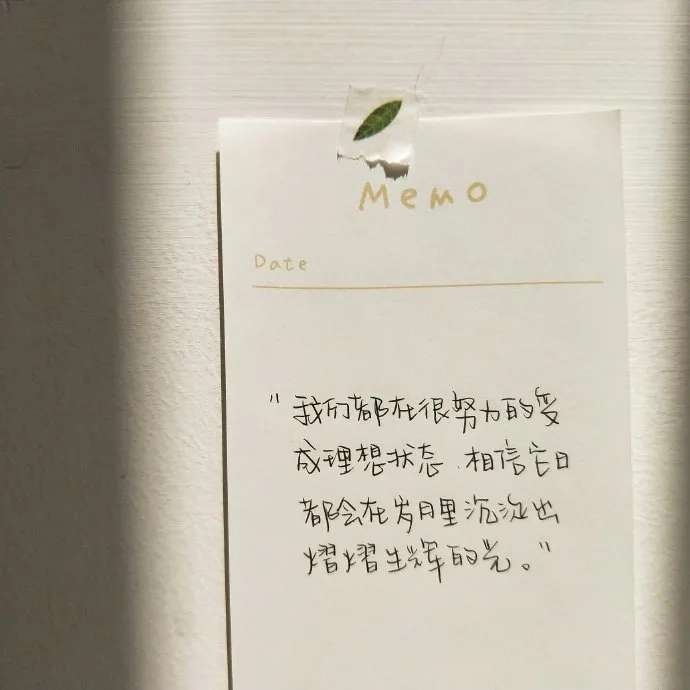 Memo
Date
"我们都在很努力的变
成理想状态.相信它日
都会在岁月里沉淀出
熠熠生辉的光。"